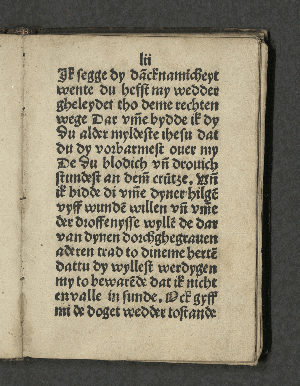 lii
Jk segge dy dãcknamicheyt
wente du hefft my wedder
gheleydet tho deme rechten
wege Dar vm̃e bydde ik dy
Du alder myldeste ihesu dat
du dy vorbarmest ouer my
De Du blodich vñ drouich
stundest an dem̃ crütze. Vñ
ik bidde di vm̃e dyner hilgẽ
vyff wundẽ willen vñ vm̃e
der droffenysse wyllẽ de dar
van dynen dorchghegrauen
aderen trad to dineme hertẽ
dattu dy wyllest werdygen
my to bewarẽde dat ik nicht
envalle in sunde. Ock gyff
mi de doget wedder tostande